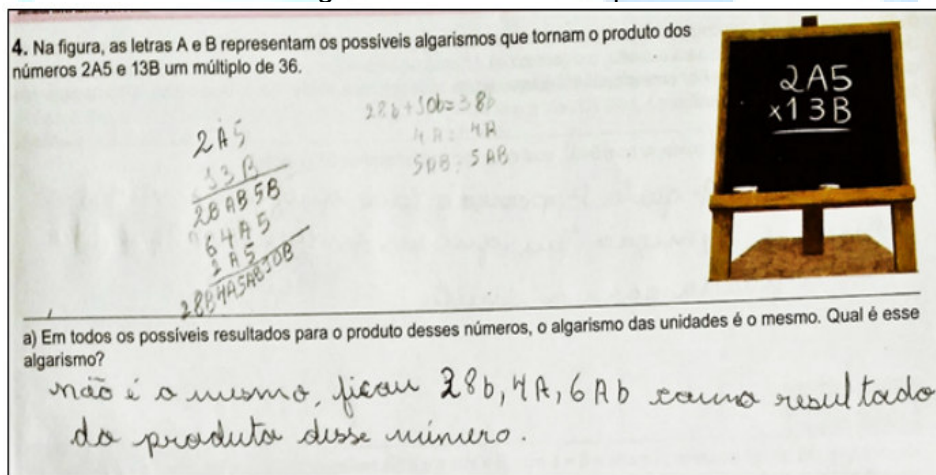 4. Na figura, as letras A e B representam os possíveis algarismos que tornam o produto dos
números 2A5 e 13B um múltiplo de 36.
2A5
×13B
28b+10b=38b
4A: 4A
5AB: 5AB
2A5
13B
2BAB5B
64A5
2A5
a) Em todos os possíveis resultados para o produto desses números, o algarismo das unidades é o mesmo. Qual é esse
algarismo?
não é o mesmo, ficou 28b, 4A, 6Ab como resultado
do produto desse número.